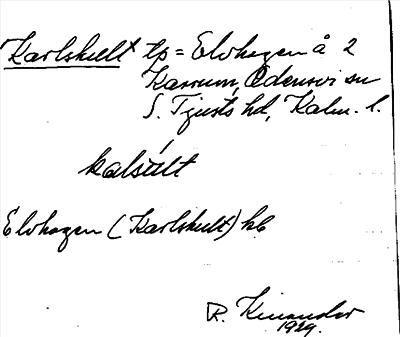 Karlshult tp = Elvhagen å 2
Karrum, Odensvi sn
S. Tjusts hd, Kalm. l.
kalsu̇lt
Elvhagen (Karlshult) hb
R. Kinander
1929.